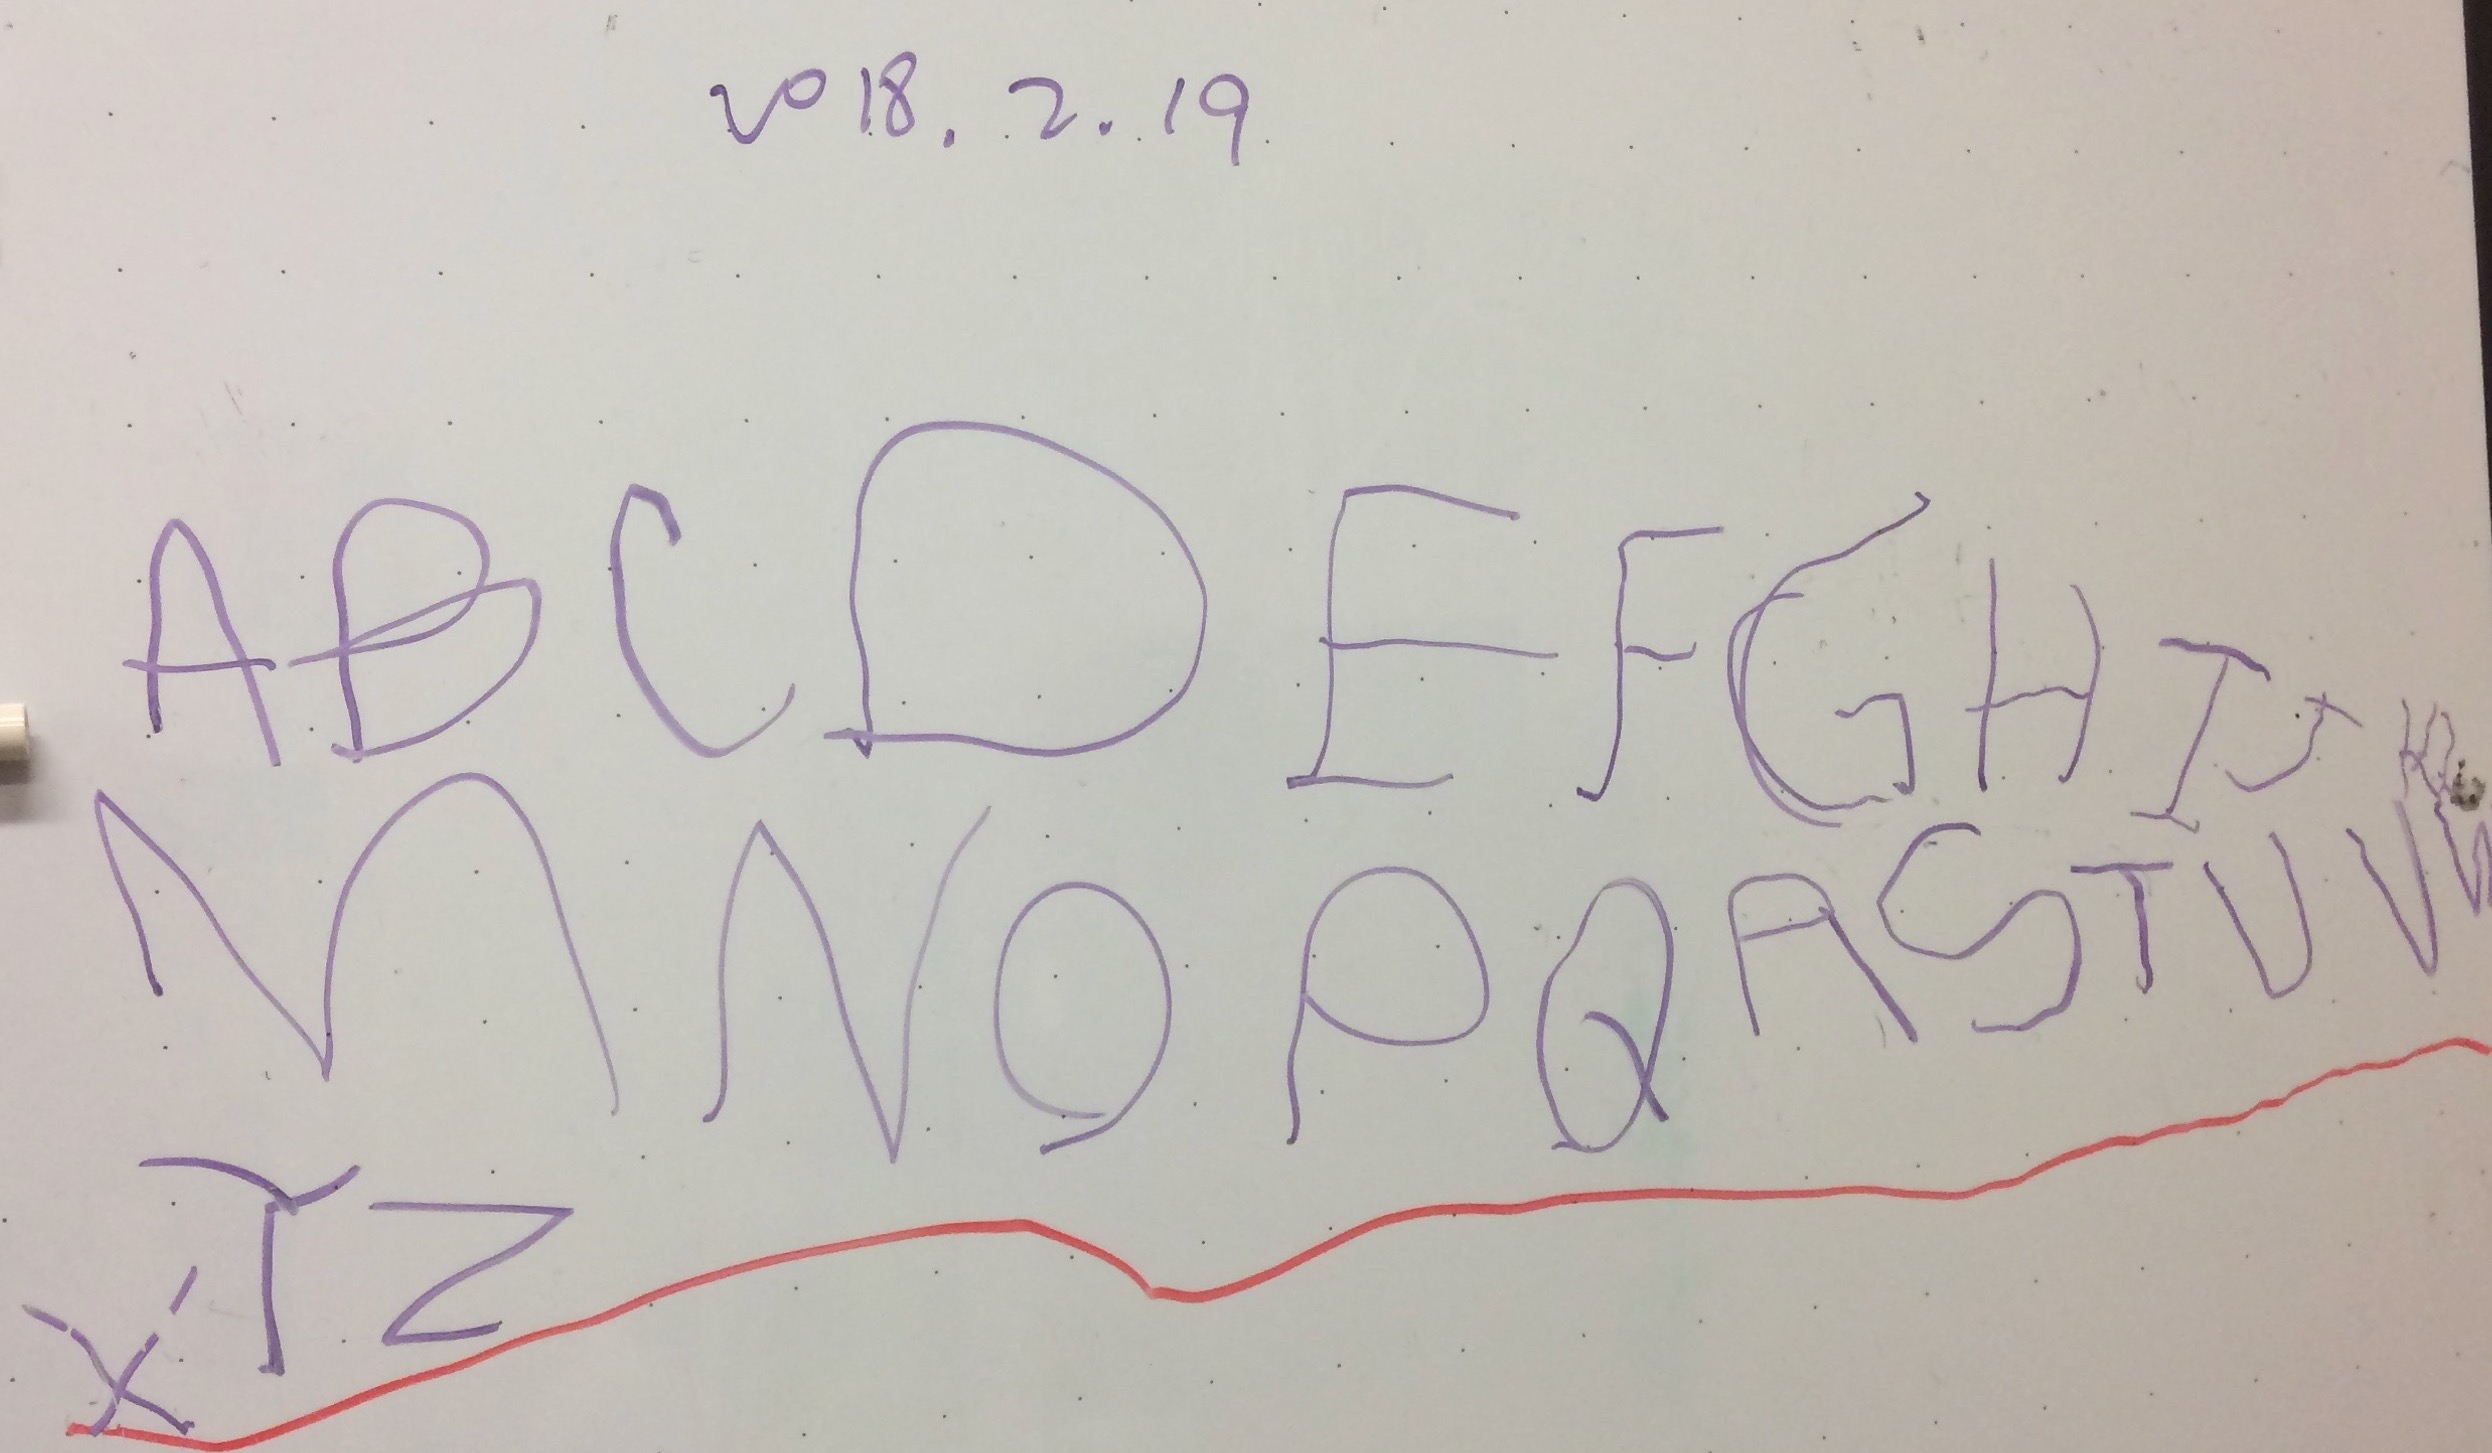 2018. 2. 19
A B C D E F G H I J K
M N O P Q R S T U V W
X Y Z